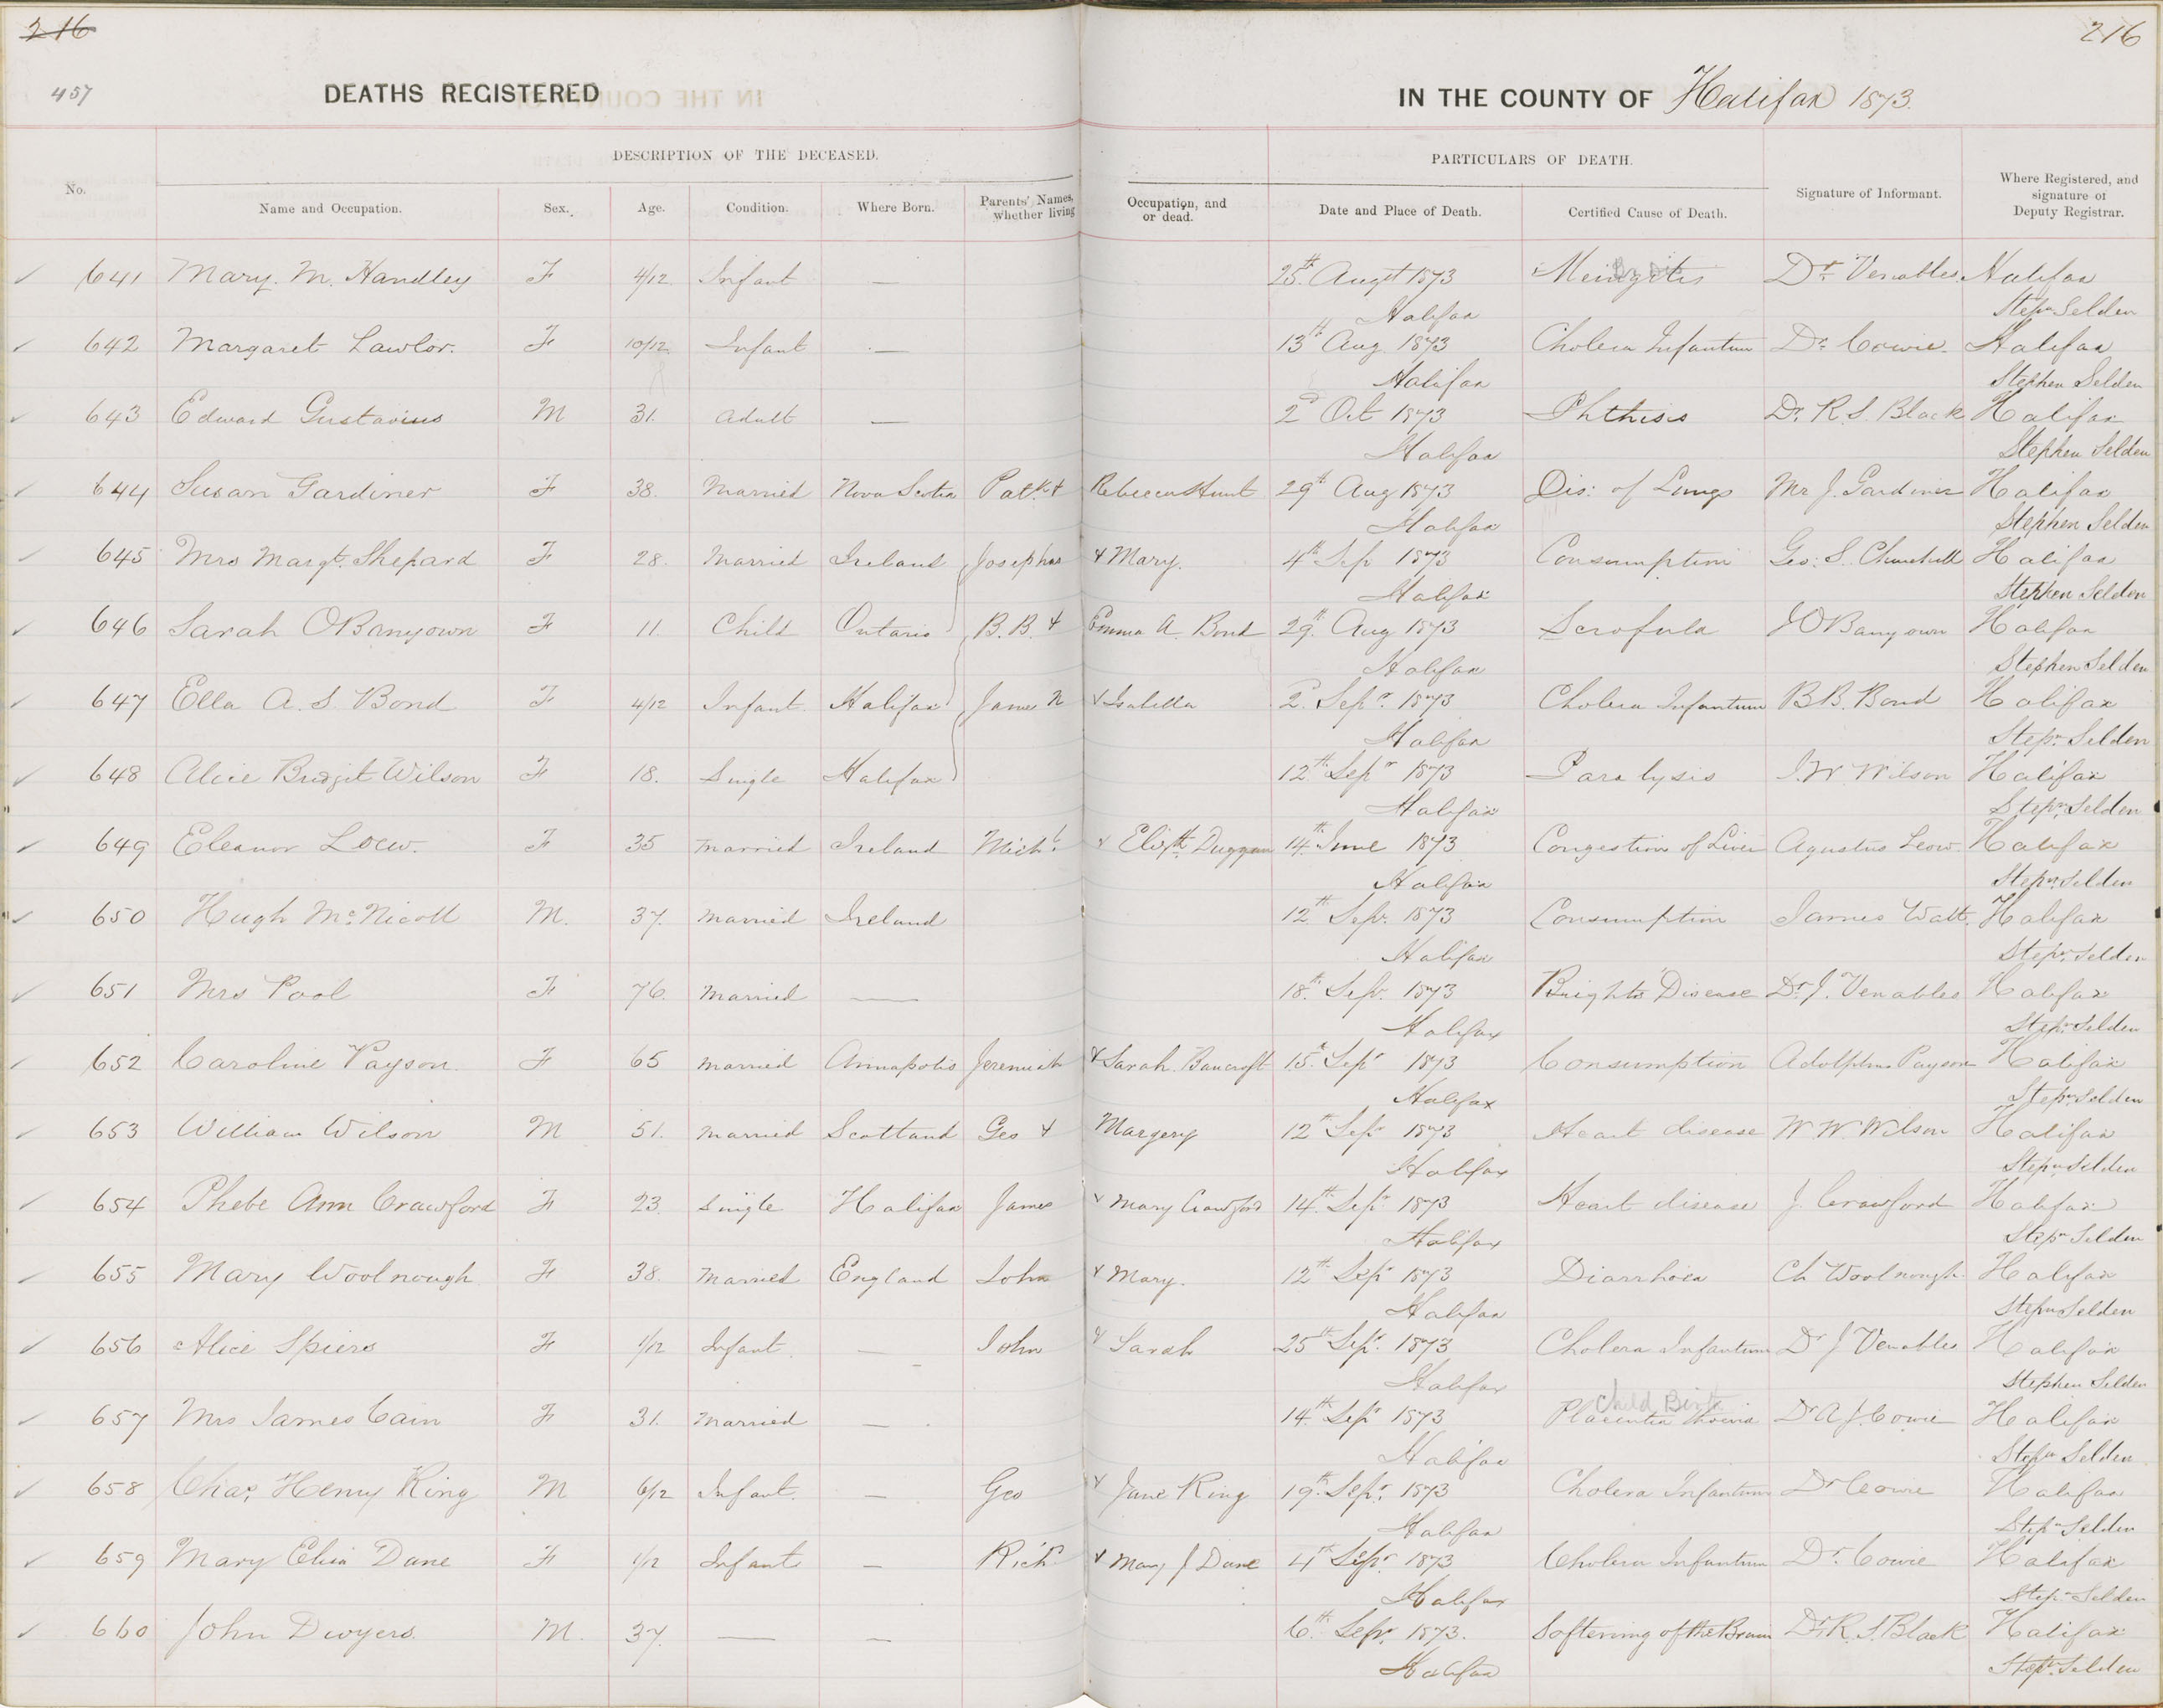 216 216
457 DEATHS REGISTERED IN THE COUNTY OF Halifax 1873.
DESCRIPTION OF THE DECEASED. PARTICULARS OF DEATH.
No. Name and Occupation. Sex. Age. Condition. Where Born. Parents' Names, whether living Occupation, and or dead. Date and Place of Death. Certified Cause of Death. Signature of Informant. Where Registered, and signature of Deputy Registrar.
641 Mary. M. Handley F 4/12 Infant — 25th Augst 1873 Meingitis Dr Venables. Halifax
Halifax Stepn Selden
642 Margaret Lawlor. F 10/12 Infant — 13th Aug 1873 Cholera Infantum Dr. Cowie. Halifax
Halifax Stephen Selden
643 Edward Gustavius M 31. adult — 2d Oct 1873 Phthisis Dr. R. S. Black Halifax
Halifax Stephen Selden
644 Susan Gardiner F 38. Married Nova Scotia Patk & Rebecca Hunt 29th Aug 1873 Dis: of Lungs Mr J. Gardiner Halifax
Halifax Stephen Selden
645 Mrs Margt. Shepard F 28. Married Ireland Josephus & Mary. 4th Sep 1873 Consumption Geo: S. Churchill Halifax
Halifax Stephen Selden
646 Sarah OBanyown F 11. Child Ontario B. B. & Emma A. Bond 29th. Aug 1873 Scrofula J OBanyown Halifax
Halifax Stephen Selden
647 Ella A. S. Bond F 4/12 Infant. Halifax James N & Isabella 2d. Sepr. 1873 Cholera Infantum B B. Bond Halifax
Halifax Stepn. Selden
648 Alice Bridgit Wilson F 18. Single Halifax 12th. Sepr 1873 Paralysis J. W Wilson Halifax
Halifax Stepn. Selden
649 Eleanor Loew. F 35 married Ireland Michl. & Elizth Duggan 14th. June 1873 Congestion of Liver Agustus Leow Halifax
Halifax Stepn. Selden
650 Hugh McNicoll M. 37. married Ireland 12th Sepr. 1873 Consumption James Watt. Halifax
Halifax Stepn. Selden
651 Mrs Pool F 76. married — 18th. Sepr. 1873 Brights Disease Dr. J. Venables Halifax
Halifax Stepn Selden
652 Caroline Payson. F 65 married Annapolis Jeremiah & Sarah. Bancroft 15th. Sepr 1873 Consumption Adolphus Payson Halifax
Halifax Stepn Selden
653 William Wilson M 51. married Scotland Geo & Margery 12th Sepr 1873 Heart disease W. W. Wilson Halifax
Halifax Stepn Selden
654 Phebe Ann Crawford F 23. single Halifax James & Mary Crawford 14th. Sepr 1873 Heart disease J. Crawford Halifax
Halifax Stepn Selden
655 Mary Woolnough. F 38. Married England John & Mary. 12th Sepr 1873 Diarrhoea Ch Woolnough. Halifax
Halifax Stepn Selden
656 Alice Spiers F 1/12 Infant. — John & Sarah 25th Sepr. 1873 Cholera Infantum Dr J Venables Halifax
Halifax Stephen Selden
Child Birth
657 Mrs James Cain F 31. Married — 14th Sepr 1873 Placenta Dr A J. Cowie Halifax
Halifax Stepn Selden
658 Chas. Henry King M 6/12 Infant. — Geo & Jane King 19th. Sepr. 1873 Cholera Infantum Dr Cowie Halifax
Halifax Stepn Selden
659 Mary Eliza Dane F 1/12 Infant — Richd & Mary J Dane 4th Sepr 1873 Cholera Infantum Dr. Cowie Halifax
Halifax Stepn Selden
660 John Dwyers. M. 37. — — 6th. Sepr. 1873. Softening of the Brain Dr R. S. Black Halifax
Halifax Stepn. Selden